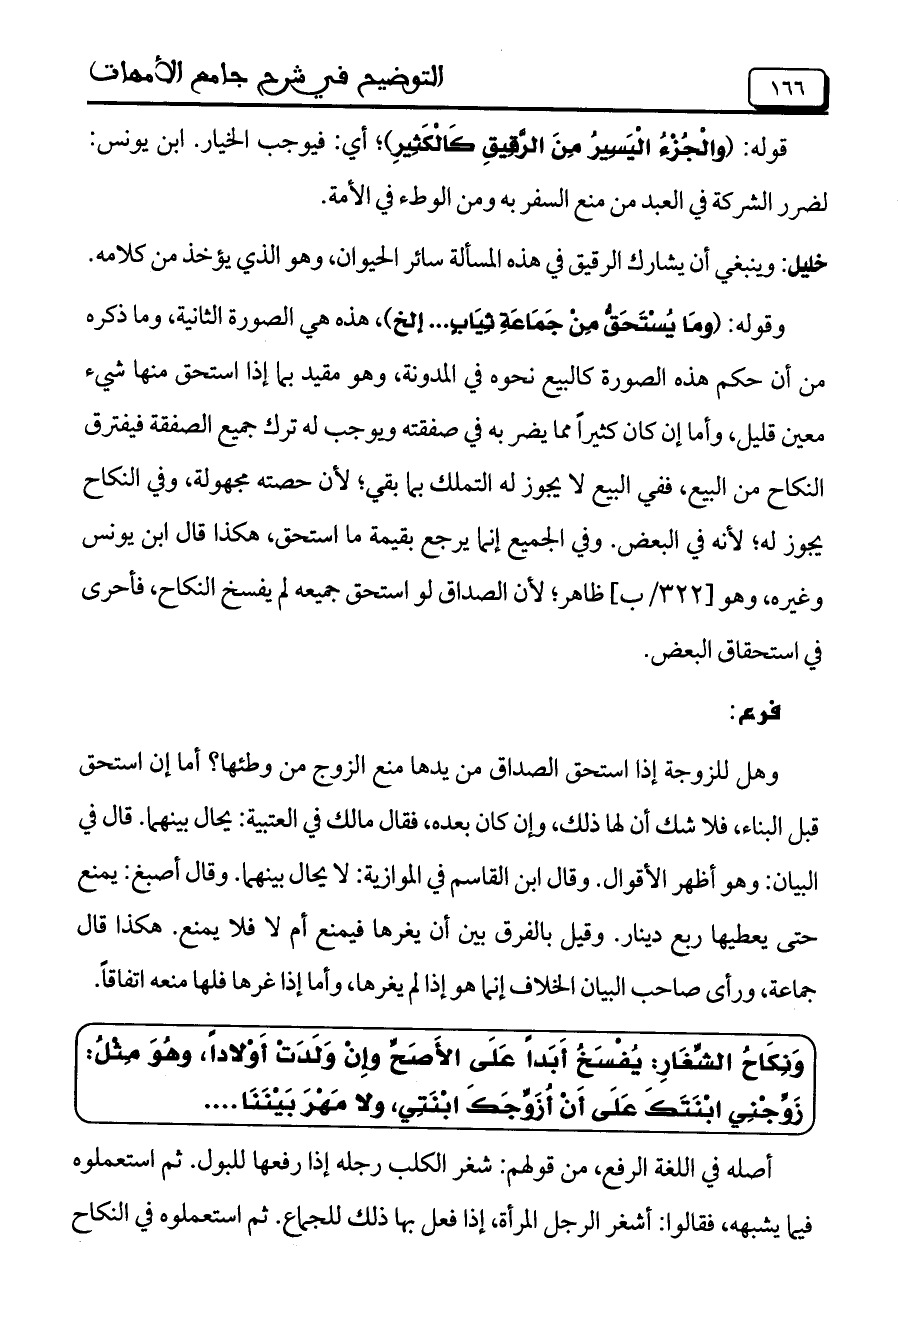 ١٦٦
التوضيح في شرح جامع الأمهات
قوله: (والْجُزْءُ الْيَسِيرُ مِنَ الرَّقِيقِ كَالْكَثِيرِ)؛ أي: فيوجب الخيار. ابن يونس:
لضرر الشركة في العبد من منع السفر به ومن الوطء في الأمة.
خليل: وينبغي أن يشارك الرقيق في هذه المسألة سائر الحيوان، وهو الذي يؤخذ من كلامه.
وقوله: (ومَا يُسْتَحَقُّ مِنْ جَمَاعَةِ ثِيَابٍ... إلخ)، هذه هي الصورة الثانية، وما ذكره
من أن حكم هذه الصورة كالبيع نحوه في المدونة، وهو مقيد بما إذا استحق منها شيء
معين قليل، وأما إن كان كثيراً مما يضر به في صفقته ويوجب له ترك جميع الصفقة فيفترق
النكاح من البيع، ففي البيع لا يجوز له التملك بما بقي؛ لأن حصته مجهولة، وفي النكاح
يجوز له؛ لأنه في البعض. وفي الجميع إنما يرجع بقيمة ما استحق، هكذا قال ابن يونس
وغيره، وهو [٣٢٢/ ب] ظاهر؛ لأن الصداق لو استحق جميعه لم يفسخ النكاح، فأحرى
في استحقاق البعض.
فرع:
وهل للزوجة إذا استحق الصداق من يدها منع الزوج من وطئها؟ أما إن استحق
قبل البناء، فلا شك أن لها ذلك، وإن كان بعده، فقال مالك في العتبية: يحال بينهما. قال في
البيان: وهو أظهر الأقوال. وقال ابن القاسم في الموازية: لا يحال بينهما. وقال أصبغ: يمنع
حتى يعطيها ربع دينار. وقيل بالفرق بين أن يغرها فيمنع أم لا فلا يمنع. هكذا قال
جماعة، ورأى صاحب البيان الخلاف إنما هو إذا لم يغرها، وأما إذا غرها فلها منعه اتفاقاً.
وَنِكَاحُ الشِّغَارِ: يُفْسَخُ أَبَداً عَلَى الأَصَحِّ وإِنْ وَلَدَتْ أَوْلاداً، وهُوَ مِثْلُ:
زَوِّجْنِي ابْنَتَكَ عَلَى أَنْ أُزَوِّجَكَ ابْنَتِي، ولا مَهْرَ بَيْنَنَا....
أصله في اللغة الرفع، من قولهم: شغر الكلب رجله إذا رفعها للبول. ثم استعملوه
فيما يشبهه، فقالوا: أشغر الرجل المرأة، إذا فعل بها ذلك للجماع. ثم استعملوه في النكاح